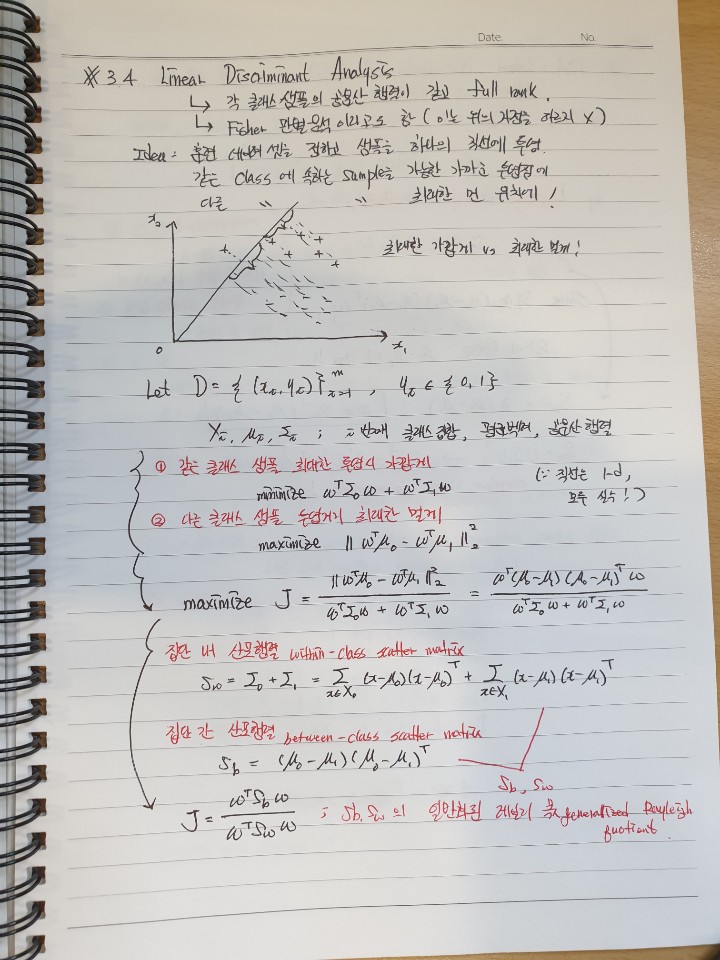 Date. No.
※ 3.4 Linear Discriminant Analysis
↳ 각 클래스 샘플의 공분산 행렬이 같고 full rank.
↳ Fisher 판별분석 이라고도 함 (이는 위의 가정을 하지 X)
Idea : 훈련 데이터 셋을 정하고 샘플을 하나의 직선에 투영.
같은 class 에 속하는 sample을 가능한 가까운 투영점에
다른 〃 〃 최대한 먼 위치에!
최대한 가깝게 vs 최대한 멀게!
x₂
0
x₁
Let D = { (xᵢ, yᵢ) }ᵢ₌₁ᵐ , yᵢ ∈ {0, 1}
Xᵢ, μᵢ, Σᵢ ; i 번째 클래스 집합, 평균벡터, 공분산 행렬
① 같은 클래스 샘플 최대한 투영시 가깝게
minimize ωᵀΣ₀ω + ωᵀΣ₁ω
(∵ 직선은 1-d, 모두 실수!)
② 다른 클래스 샘플 투영거리 최대한 멀게
maximize ‖ωᵀμ₀ - ωᵀμ₁‖₂²
maximize J = ‖ωᵀμ₀ - ωᵀμ₁‖₂² / (ωᵀΣ₀ω + ωᵀΣ₁ω) = ωᵀ(μ₀-μ₁)(μ₀-μ₁)ᵀω / (ωᵀΣ₀ω + ωᵀΣ₁ω)
집단 내 산포행렬 within-class scatter matrix
Sω = Σ₀ + Σ₁ = Σ_{x∈X₀} (x-μ₀)(x-μ₀)ᵀ + Σ_{x∈X₁} (x-μ₁)(x-μ₁)ᵀ
집단 간 산포행렬 between-class scatter matrix
S_b = (μ₀-μ₁)(μ₀-μ₁)ᵀ
S_b, Sω
J = ωᵀS_bω / ωᵀSωω ; S_b, Sω 의 일반화된 레일리 몫 generalized Rayleigh
quotient.